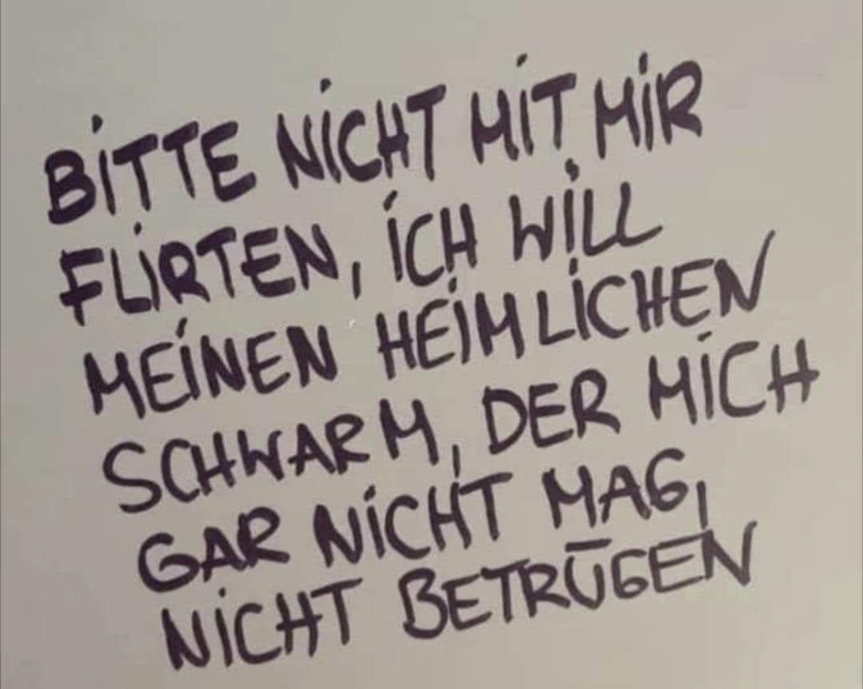 BITTE NICHT MIT MIR
FLIRTEN, ICH WILL
MEINEN HEIMLICHEN
SCHWARM, DER MICH
GAR NICHT MAG,
NICHT BETRÜGEN